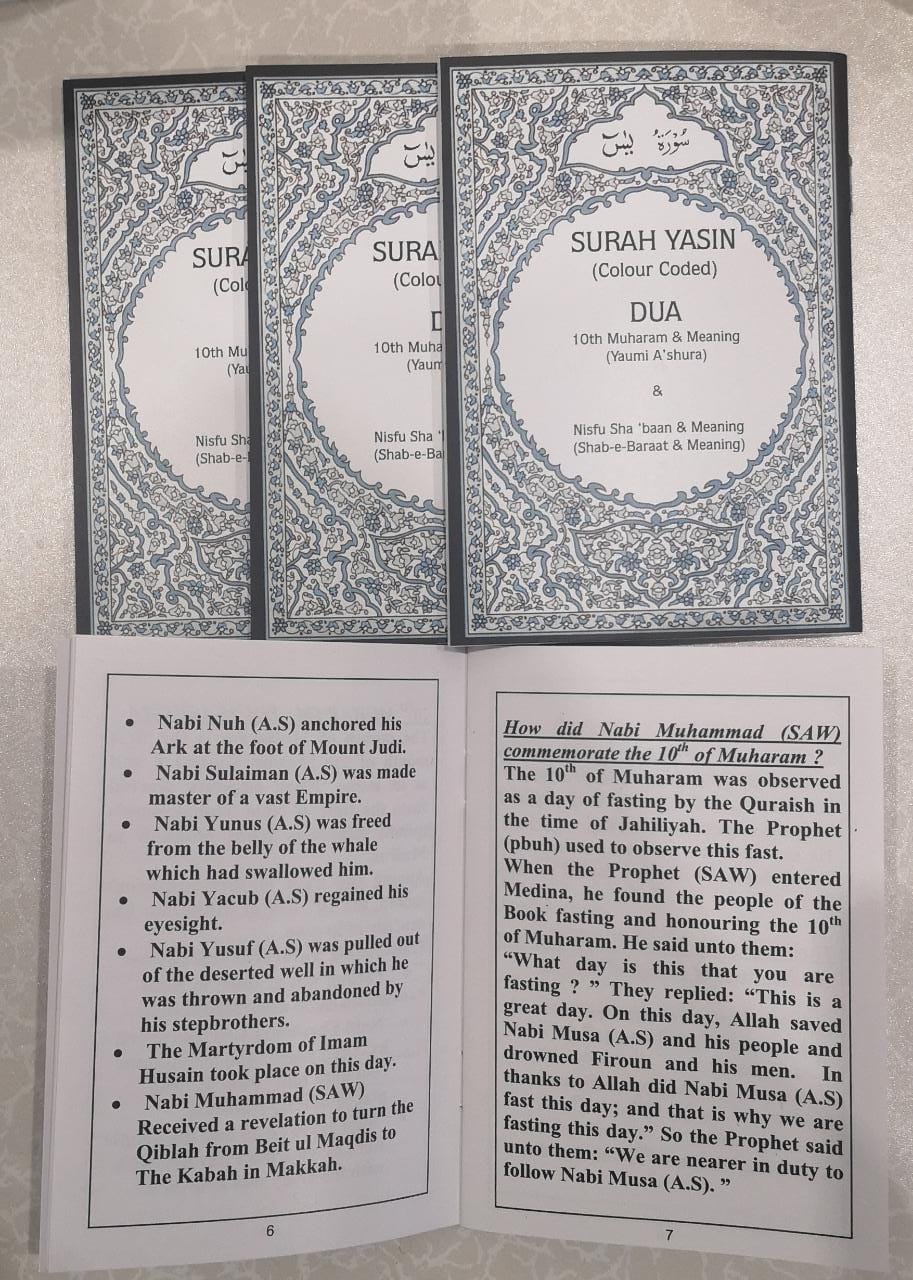 يس
SURA
(Colo
10th Mu
(Yau
Nisfu Sha
(Shab-e-
يس
SURA
(Colou
D
10th Muha
(Yaum
Nisfu Sha '
(Shab-e-Ba
سُوْرَةُ يٰسٓ
SURAH YASIN
(Colour Coded)
DUA
10th Muharam & Meaning
(Yaumi A'shura)
&
Nisfu Sha 'baan & Meaning
(Shab-e-Baraat & Meaning)
• Nabi Nuh (A.S) anchored his
Ark at the foot of Mount Judi.
• Nabi Sulaiman (A.S) was made
master of a vast Empire.
• Nabi Yunus (A.S) was freed
from the belly of the whale
which had swallowed him.
• Nabi Yacub (A.S) regained his
eyesight.
• Nabi Yusuf (A.S) was pulled out
of the deserted well in which he
was thrown and abandoned by
his stepbrothers.
• The Martyrdom of Imam
Husain took place on this day.
• Nabi Muhammad (SAW)
Received a revelation to turn the
Qiblah from Beit ul Maqdis to
The Kabah in Makkah.
6
How did Nabi Muhammad (SAW)
commemorate the 10th of Muharam ?
The 10th of Muharam was observed
as a day of fasting by the Quraish in
the time of Jahiliyah. The Prophet
(pbuh) used to observe this fast.
When the Prophet (SAW) entered
Medina, he found the people of the
Book fasting and honouring the 10th
of Muharam. He said unto them:
“What day is this that you are
fasting ? ” They replied: “This is a
great day. On this day, Allah saved
Nabi Musa (A.S) and his people and
drowned Firoun and his men. In
thanks to Allah did Nabi Musa (A.S)
fast this day; and that is why we are
fasting this day.” So the Prophet said
unto them: “We are nearer in duty to
follow Nabi Musa (A.S). ”
7